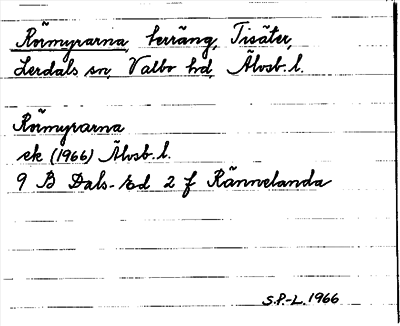 Rörmyrarna, terräng, Tisäter,
Lerdals sn, Valbo hd, Älvsb. l.
Rörmyrarna
ek (1966) Älvsb. l.
9 B Dals-Ed 2 f Rännelanda
S.P.-L. 1966